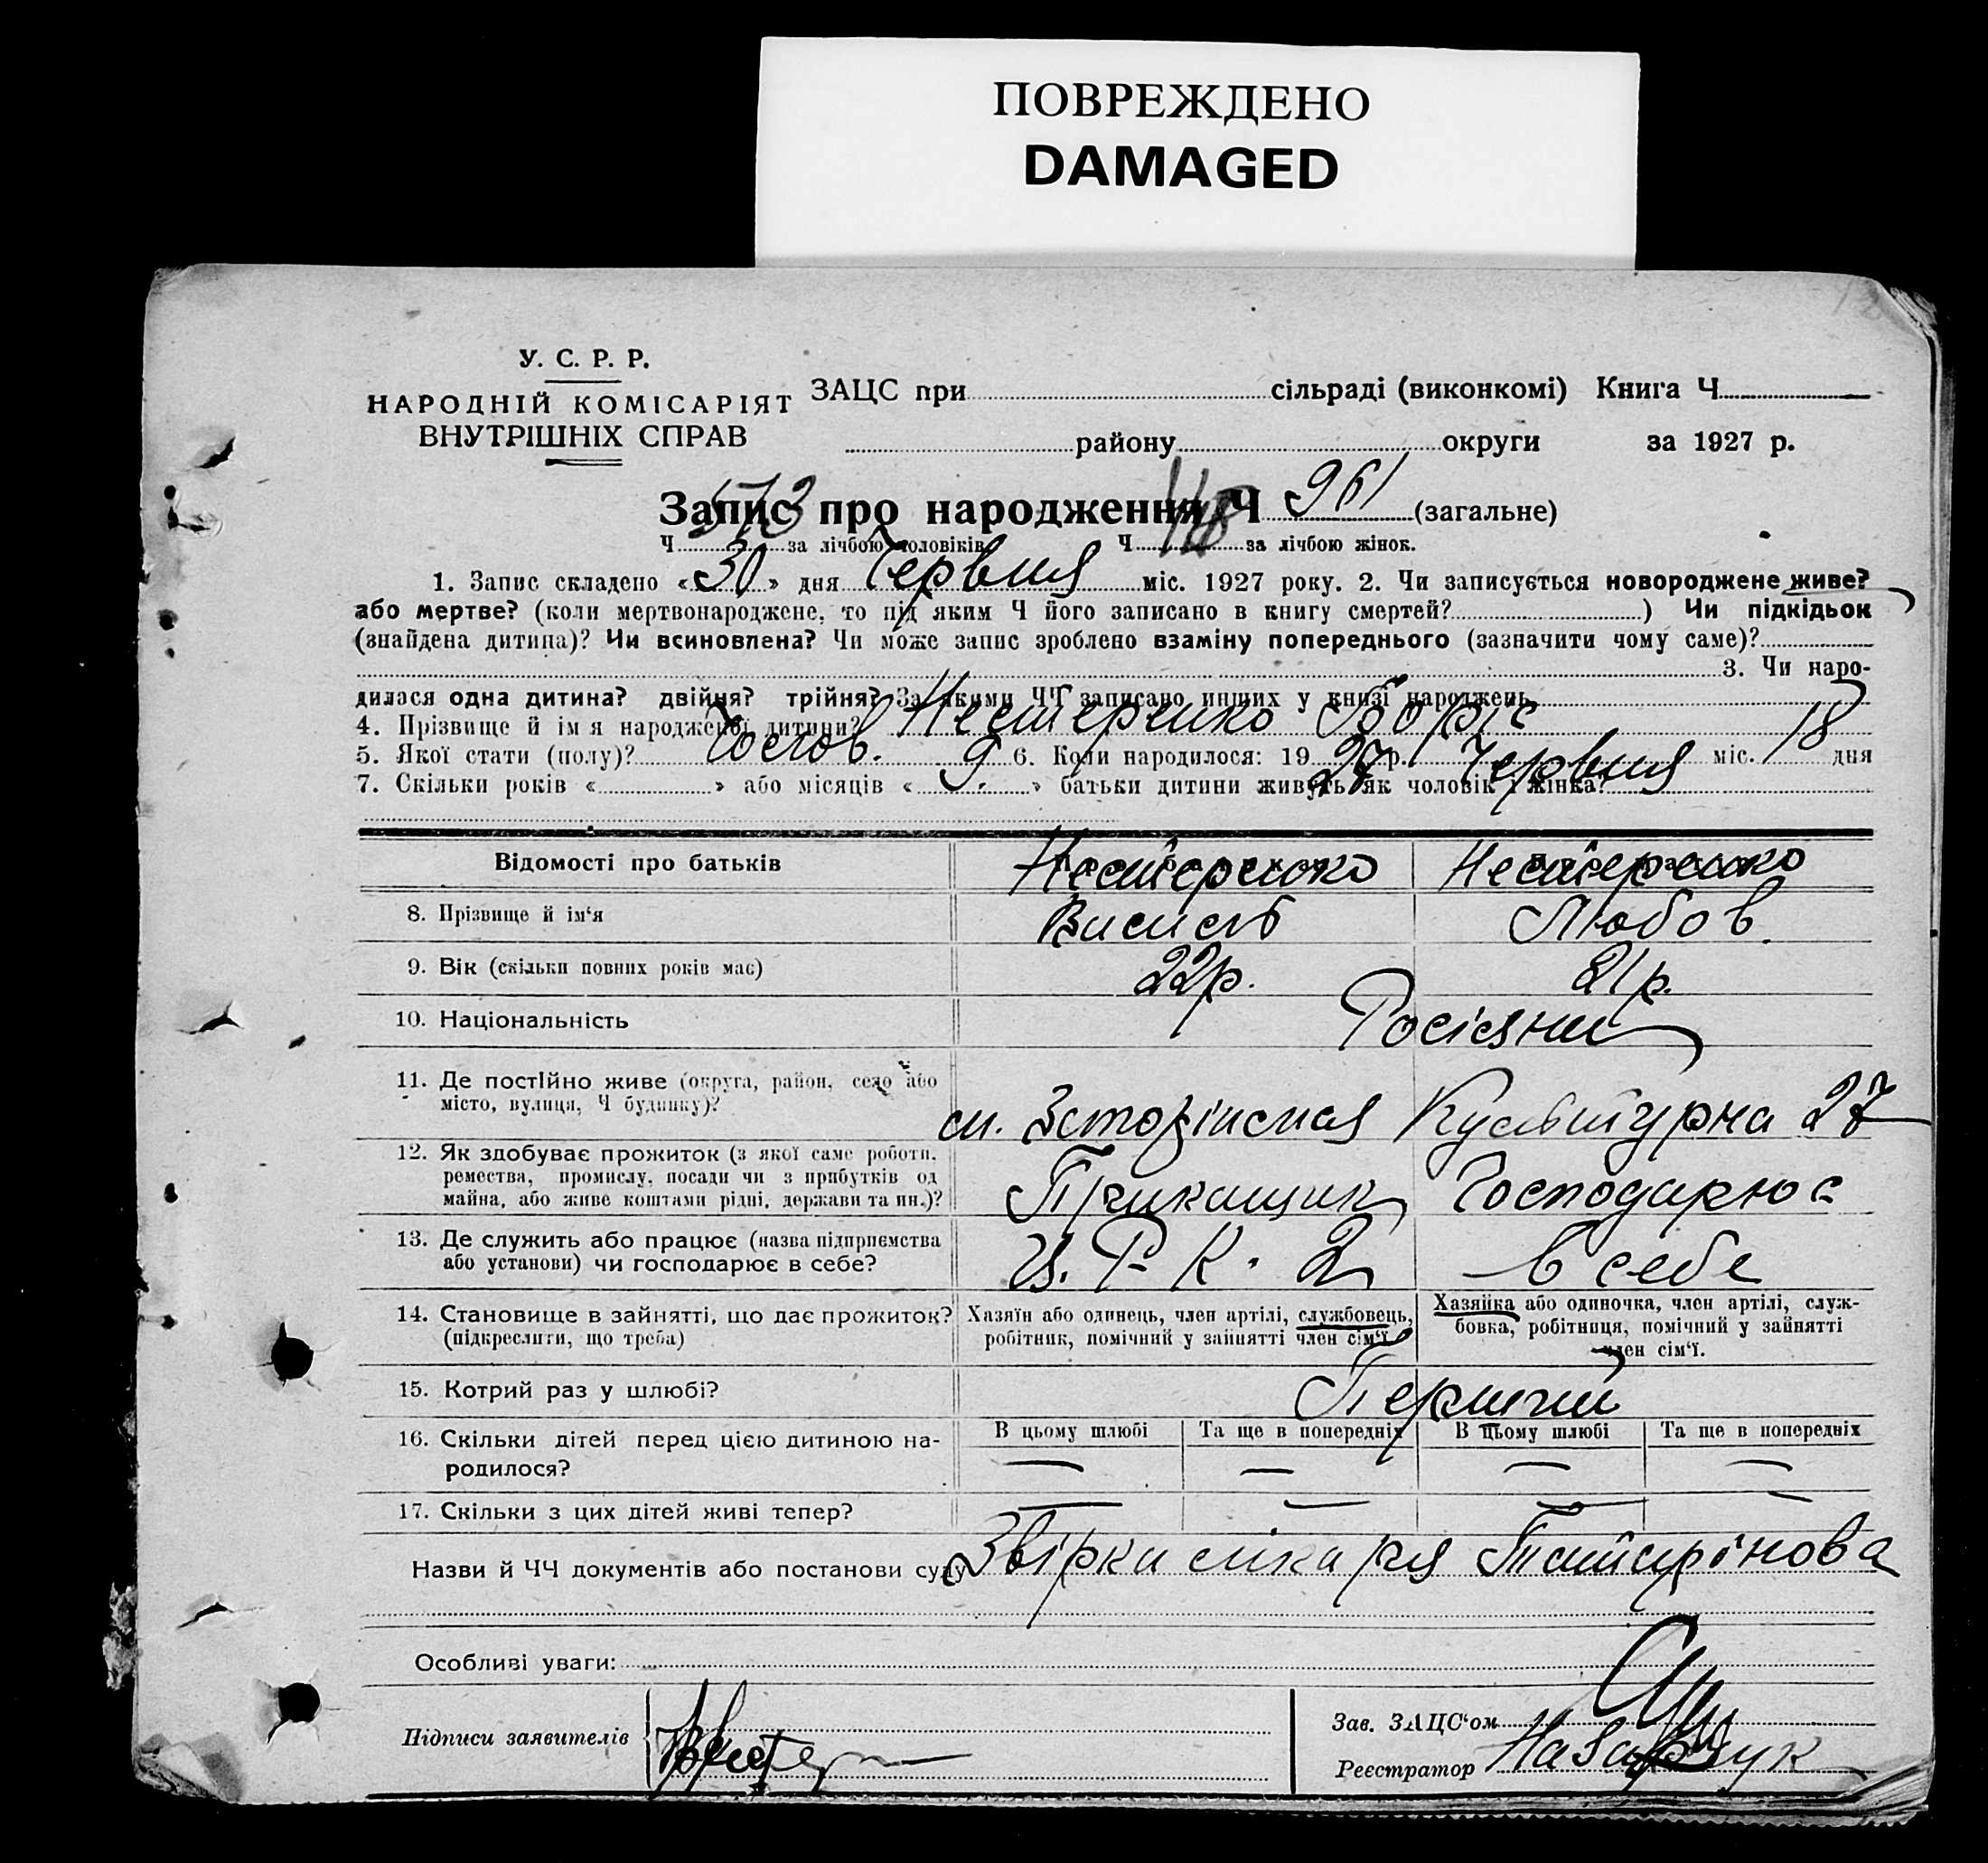 ПОВРЕЖДЕНО
DAMAGED
У. С. Р. Р.
НАРОДНІЙ КОМІСАРІЯТ
ВНУТРІШНІХ СПРАВ
ЗАЦС при сільраді (виконкомі) Книга Ч
району округи за 1927 р.
Запис про народження Ч 961 (загальне)
Ч 573 за лічбою чоловіків Ч за лічбою жінок.
1. Запис складено «30» дня Червня міс. 1927 року. 2. Чи записується новороджене живе?
або мертве? (коли мертвонароджене, то під яким Ч його записано в книгу смертей? ) Чи підкідьок
(знайдена дитина)? Чи всиновлена? Чи може запис зроблено взаміну попереднього (зазначити чому саме)?
3. Чи наро-
дилася одна дитина? двійня? трійня? За якими ЧЧ записано инших у книзі народжень
4. Прізвище й ім'я народженої дитини? Нестеренко Боріс
5. Якої стати (полу)? Чолов. 6. Коли народилося: 1927 р. Червня міс. 18 дня
7. Скільки років « » або місяців « 9. » батьки дитини живуть як чоловік і жінка?
Відомості про батьків
Нестеренко Нестеренко
8. Прізвище й ім'я Любов
9. Вік (скільки повних років має) 22р. 21р.
10. Національність Росіяни
11. Де постійно живе (округа, район, село або
місто, вулиця, Ч будинку)?
Культурна 27
12. Як здобуває прожиток (з якої саме роботи,
ремества, промислу, посади чи з прибутків од
майна, або живе коштами рідні, держави та ин.)?
Прикащик Господарює
13. Де служить або працює (назва підприємства
або установи) чи господарює в себе?
Р. К. 2 в себе
14. Становище в зайнятті, що дає прожиток?
(підкреслити, що треба)
Хазяїн або одинець, член артілі, службовець,
робітник, помічний у зайнятті член сім'ї
Хазяйка або одиночка, член артілі, служ-
бовка, робітниця, помічний у зайнятті
член сім'ї.
15. Котрий раз у шлюбі? Перший
16. Скільки дітей перед цією дитиною на-
родилося?
В цьому шлюбі Та ще в попередніх В цьому шлюбі Та ще в попередніх
— — — —
17. Скільки з цих дітей живі тепер? — — — —
Назви й ЧЧ документів або постанови суду лікаря
Особливі уваги:
Підписи заявителів
Зав. ЗАЦС'ом
Реєстратор Назарчук